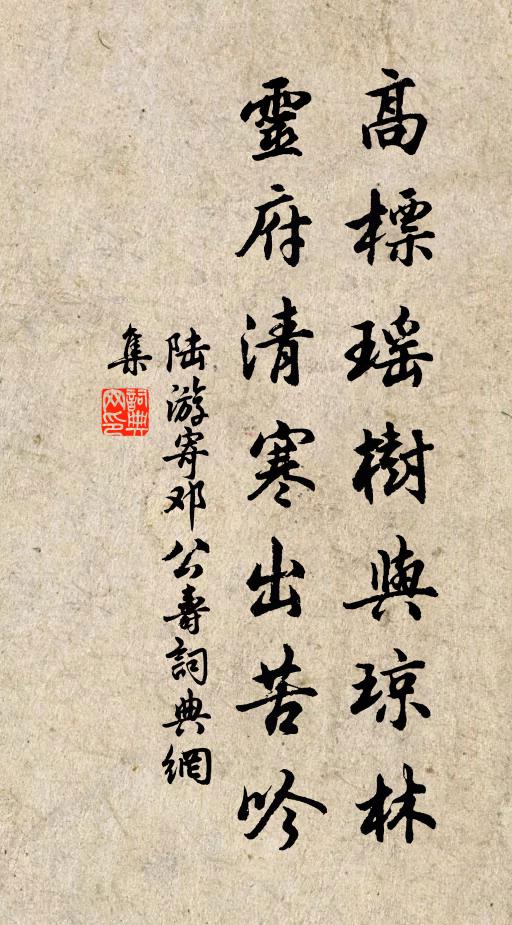 高標瑶樹與琼林
靈府清寒出苦吟
陆游寄邓公壽詞典網
集
詞典網印